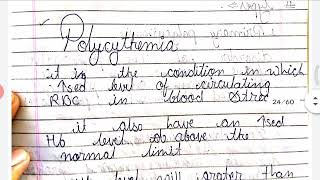 Polycythemia
it is the condition in which
↑sed level of circulating
RBC in blood stree
24/60
it also have an ↑sed
Hb level ob above the
normal limit
level will greater than